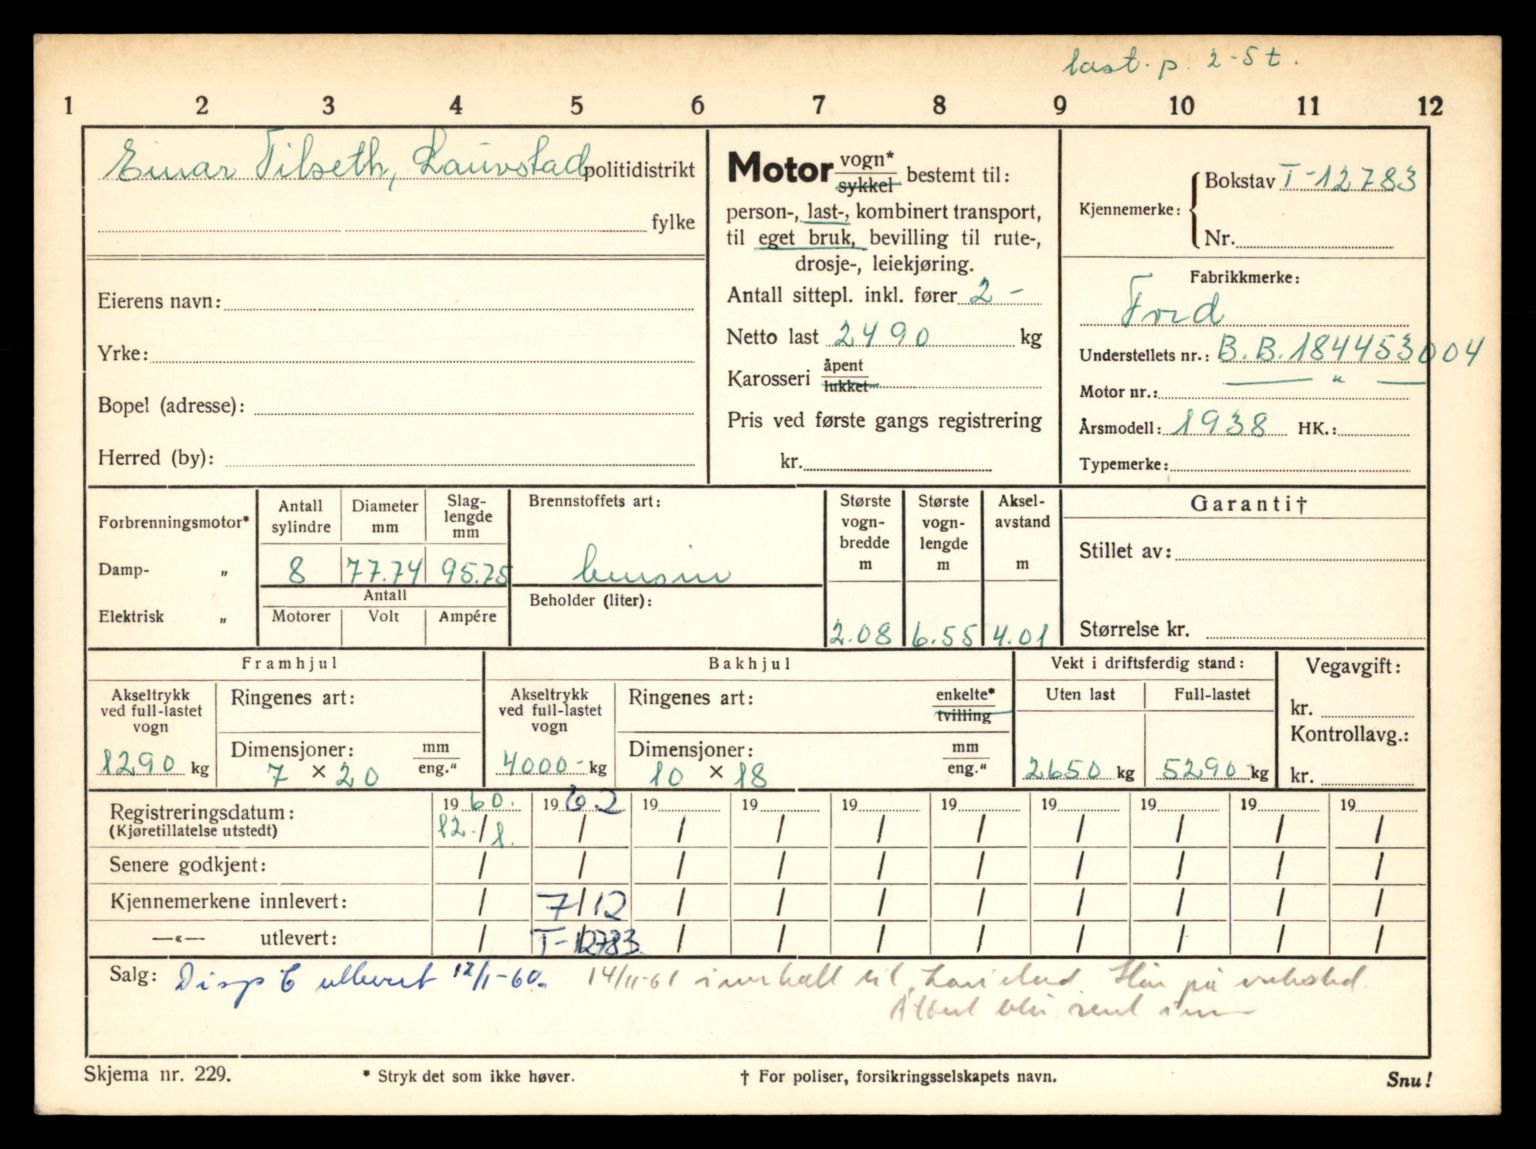 last. p. 2-5 t.
1 2 3 4 5 6 7 8 9 10 11 12
Einar Tilseth, Lauvstad politidistrikt
fylke
Eierens navn:
Yrke:
Bopel (adresse):
Herred (by):
Motor vogn* sykkel bestemt til:
person-, last-, kombinert transport,
til eget bruk, bevilling til rute-,
drosje-, leiekjøring.
Antall sittepl. inkl. fører 2 -
Netto last 2490 kg
Karosseri åpent lukket
Pris ved første gangs registrering
kr.
Kjennemerke: Bokstav T-12783
Nr.
Fabrikkmerke:
Ford
Understellets nr.: B.B.184453004
Motor nr.: — " —
Årsmodell: 1938 HK.:
Typemerke:
Forbrenningsmotor*
Damp- „
Elektrisk „
Antall sylindre Diameter mm Slag-lengde mm
8 77.74 95.25
Antall
Motorer Volt Ampére
Brennstoffets art:
bensin
Beholder (liter):
Største vogn-bredde m Største vogn-lengde m Aksel-avstand m
2.08 6.55 4.01
Garanti†
Stillet av:
Størrelse kr.
Framhjul
Akseltrykk ved full-lastet vogn
1290 kg
Ringenes art:
Dimensjoner: mm eng."
7 × 20
Bakhjul
Akseltrykk ved full-lastet vogn
4000- kg
Ringenes art: enkelte* tvilling
Dimensjoner: mm eng."
10 × 18
Vekt i driftsferdig stand:
Uten last Full-lastet
2650 kg 5290- kg
Vegavgift:
kr.
Kontrollavg.:
kr.
Registreringsdatum: 1960. 1962 19 19 19 19 19 19 19 19
(Kjøretillatelse utstedt) 12./1. / / / / / / / / /
Senere godkjent: / / / / / / / / / /
Kjennemerkene innlevert: / 7/12 / / / / / / / /
—«— utlevert: / T-12783 / / / / / / / /
Salg: Disp 6 utlevert 12/1-60. 14/11-61 til på
Albert
Skjema nr. 229. * Stryk det som ikke høver. † For poliser, forsikringsselskapets navn. Snu!